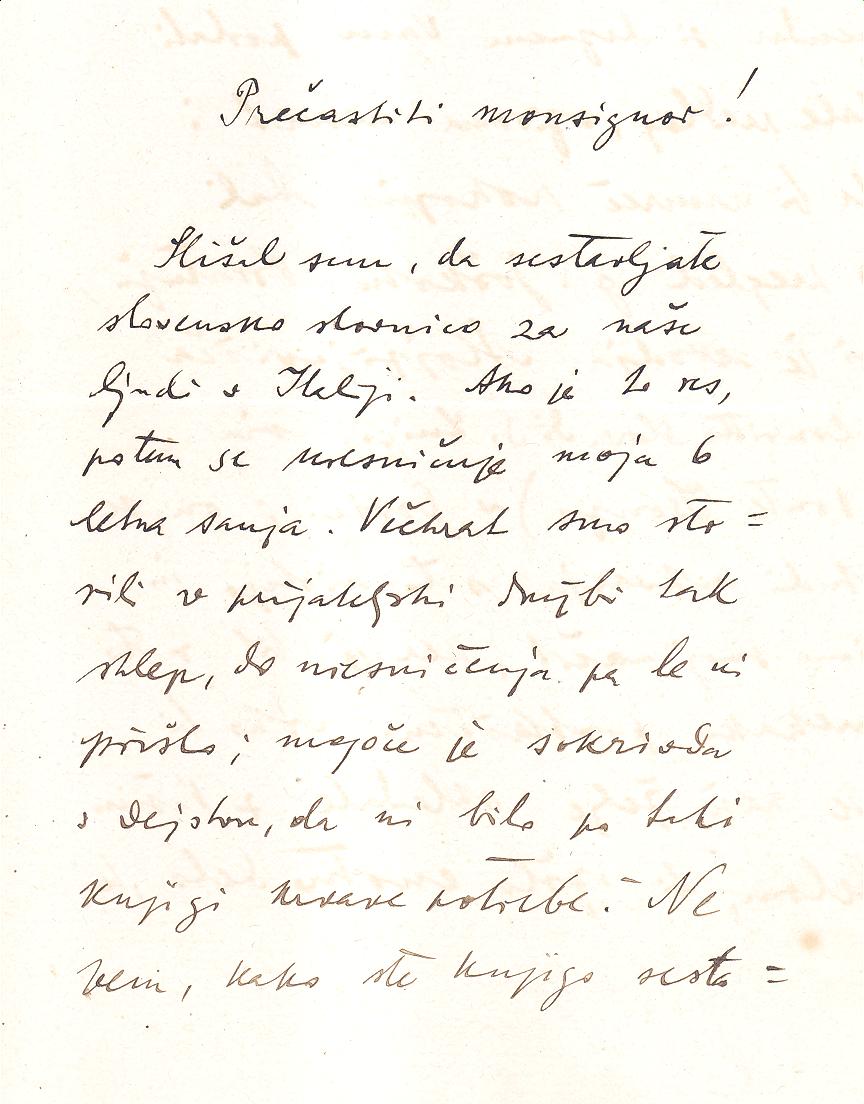 Prečastiti monsignor!
Slišal sem, da sestavljate
slovensko slovnico za naše
ljudi v Italiji. Ako je to res,
potem se uresničuje moja 6
letna sanja. Večkrat smo sto=
rili v prijateljski družbi tak
sklep, do uresničenja pa le ni
prišlo; mogoče je sokrivda
v dejstvu, da ni bilo po taki
knjigi krvave potrebe. - Ne
vem, kako ste knjigo sesta=